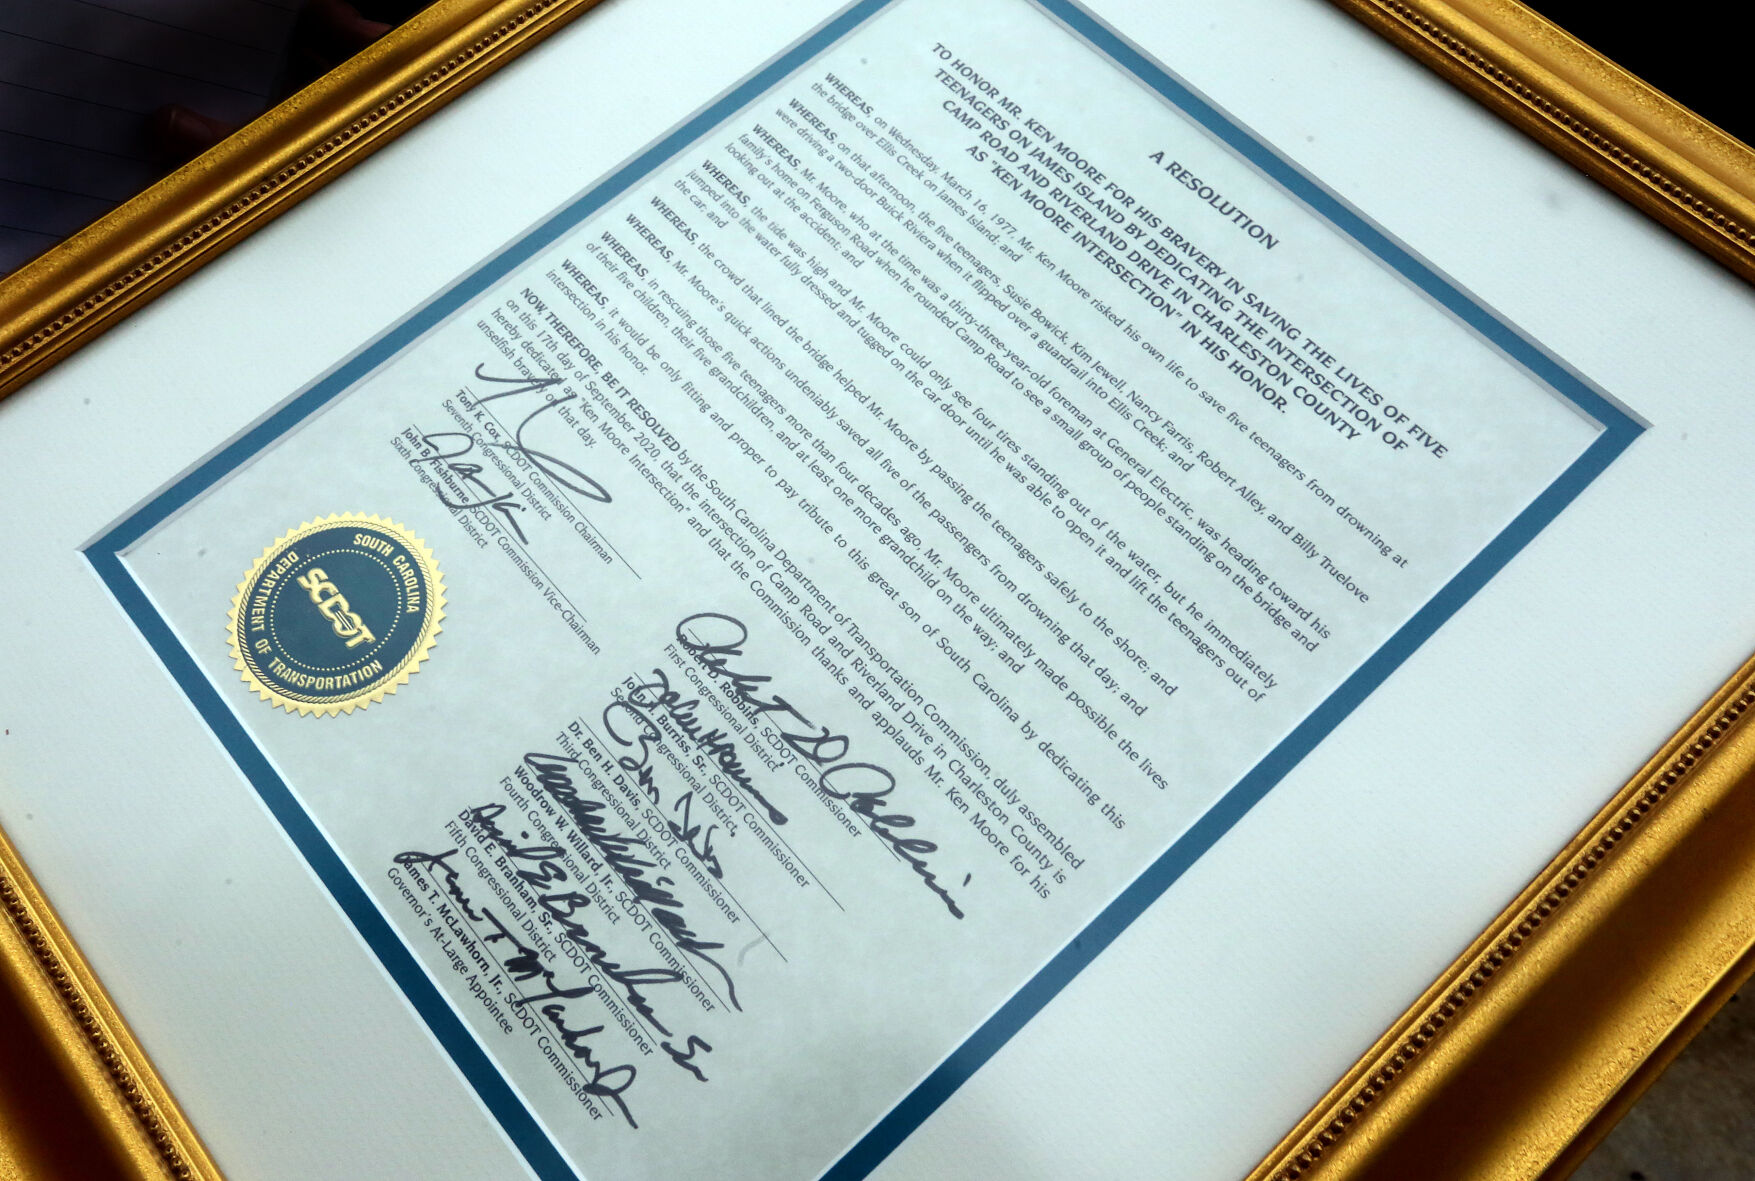 A RESOLUTION
TO HONOR MR. KEN MOORE FOR HIS BRAVERY IN SAVING THE LIVES OF FIVE
TEENAGERS ON JAMES ISLAND BY DEDICATING THE INTERSECTION OF
CAMP ROAD AND RIVERLAND DRIVE IN CHARLESTON COUNTY
AS "KEN MOORE INTERSECTION" IN HIS HONOR.
WHEREAS, on Wednesday, March 16, 1977, Mr. Ken Moore risked his own life to save five teenagers from drowning at
the bridge over Ellis Creek on James Island; and
WHEREAS, on that afternoon, the five teenagers, Susie Bowick, Kim Jewell, Nancy Farris, Robert Alley, and Billy Truelove
were driving a two-door Buick Riviera when it flipped over a guardrail into Ellis Creek; and
WHEREAS, Mr. Moore, who at the time was a thirty-three-year-old foreman at General Electric, was heading toward his
family's home on Ferguson Road when he rounded Camp Road to see a small group of people standing on the bridge and
looking out at the accident; and
WHEREAS, the tide was high and Mr. Moore could only see four tires standing out of the water, but he immediately
jumped into the water fully dressed and tugged on the car door until he was able to open it and lift the teenagers out of
the car; and
WHEREAS, the crowd that lined the bridge helped Mr. Moore by passing the teenagers safely to the shore; and
WHEREAS, Mr. Moore's quick actions undeniably saved all five of the passengers from drowning that day; and
WHEREAS, in rescuing those five teenagers more than four decades ago, Mr. Moore ultimately made possible the lives
of their five children, their five grandchildren, and at least one more grandchild on the way; and
WHEREAS, it would be only fitting and proper to pay tribute to this great son of South Carolina by dedicating this
intersection in his honor.
NOW, THEREFORE, BE IT RESOLVED by the South Carolina Department of Transportation Commission, duly assembled
on this 17th day of September 2020, that the Intersection of Camp Road and Riverland Drive in Charleston County is
hereby dedicated as "Ken Moore Intersection" and that the Commission thanks and applauds Mr. Ken Moore for his
unselfish bravery on that day.
Tony K. Cox, SCDOT Commission Chairman
Seventh Congressional District
John B. Fishburne, SCDOT Commission Vice-Chairman
Sixth Congressional District
Robert D. Robbins
Robert D. Robbins, SCDOT Commissioner
First Congressional District
John H. Burriss, Sr., SCDOT Commissioner
Second Congressional District
Ben Davis
Dr. Ben H. Davis, SCDOT Commissioner
Third Congressional District
Woodrow W. Willard, Jr., SCDOT Commissioner
Fourth Congressional District
David E Branham Sr
David E. Branham, Sr., SCDOT Commissioner
Fifth Congressional District
James T. McLawhorn, Jr., SCDOT Commissioner
Governor's At-Large Appointee
SOUTH CAROLINA
SCDOT
DEPARTMENT OF TRANSPORTATION